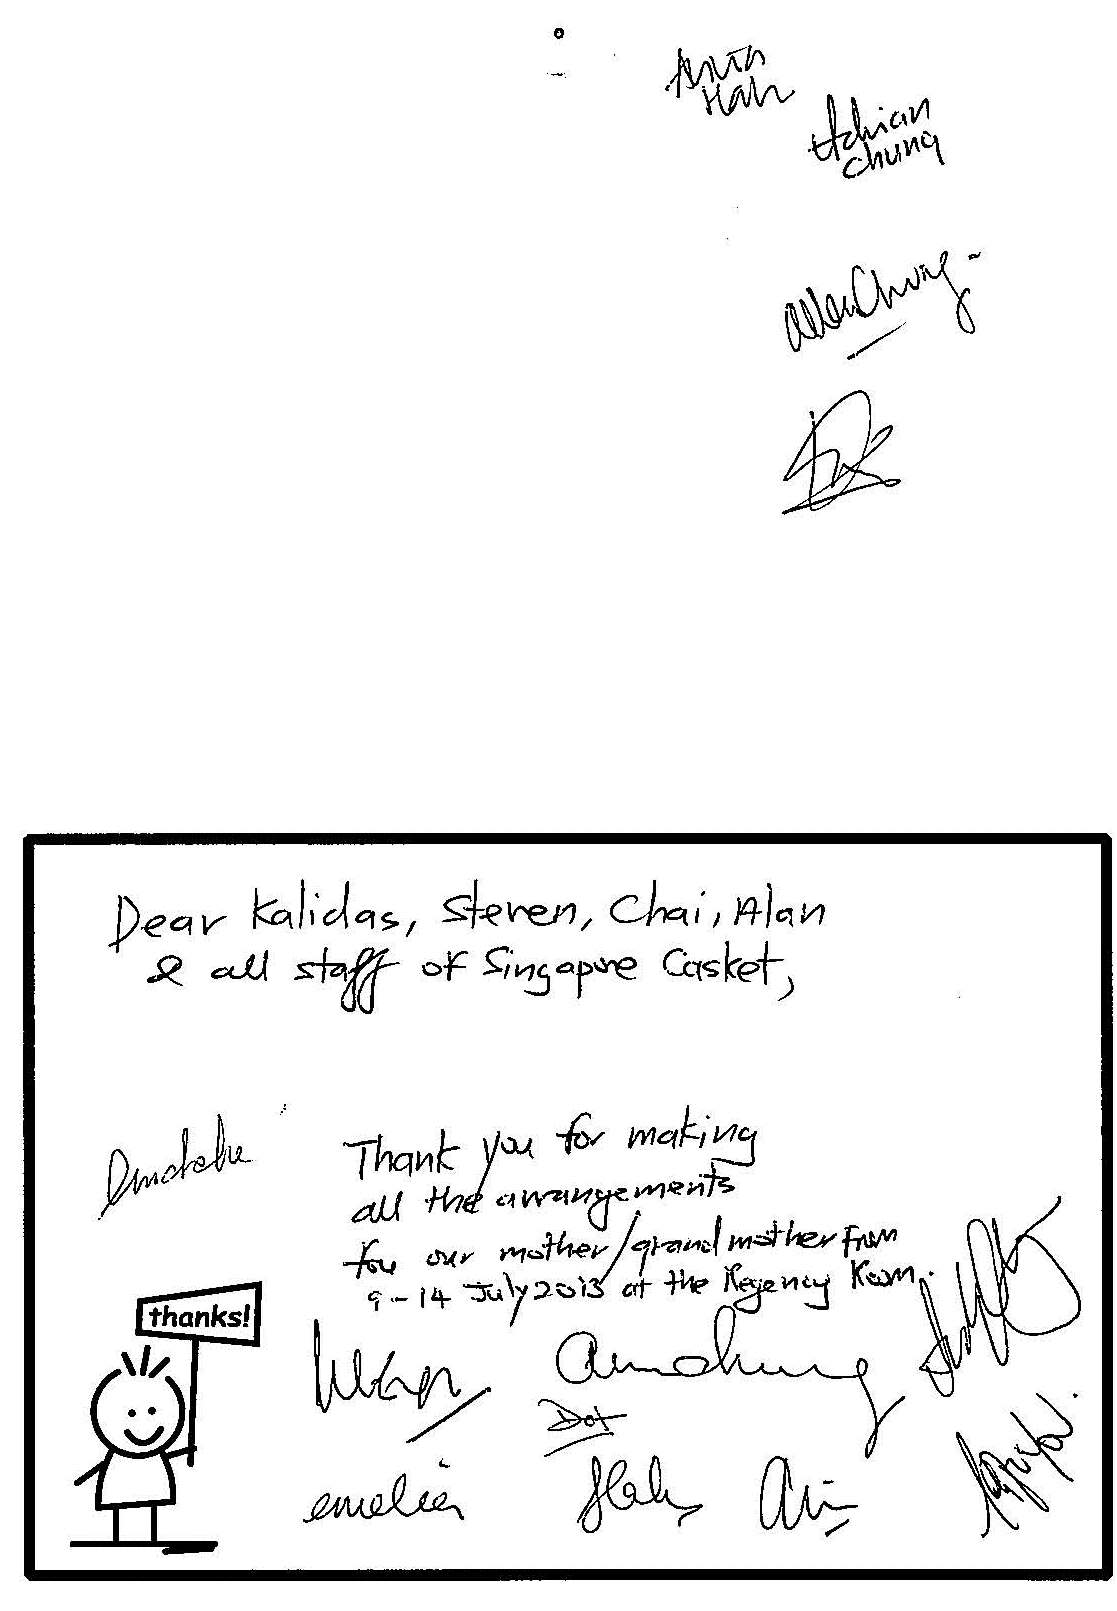 Anita
Hah
Adrian
Chung
Chung
Dear Kalidas, Steven, Chai, Alan
& all staff of Singapore Casket,
Thank you for making
all the arrangements
for our mother/grandmother from
9-14 July 2013 at the Regency Room.
thanks!
Dot
emelia